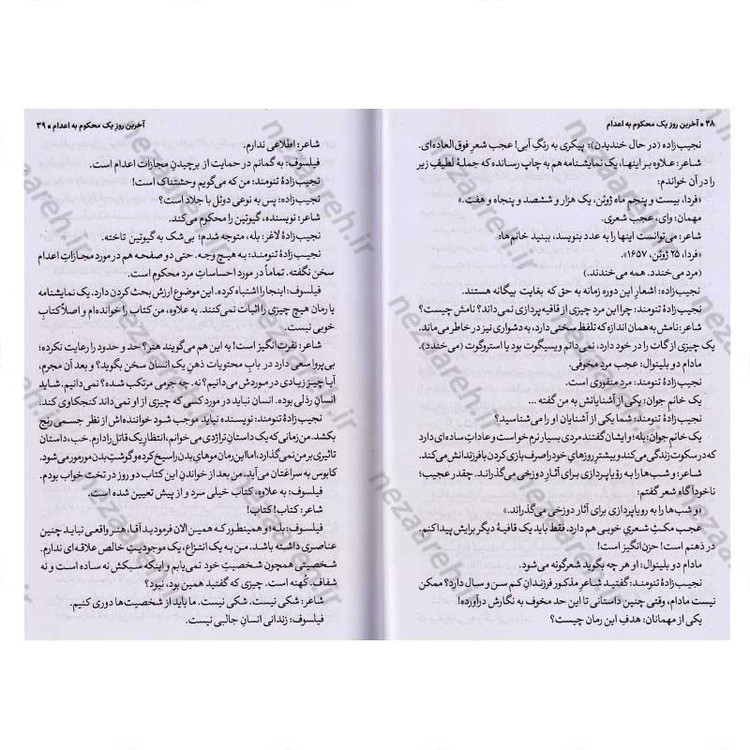 ۳۸ ▪ آخرین روز یک محکوم به اعدام
نجیب‌زاده (در حال خندیدن): پیکری به رنگِ آبی! عجب شعرِ فوق‌العاده‌ای.
شاعر: علاوه بر اینها، یک نمایشنامه هم به چاپ رسانده که جملهٔ لطیفِ زیر
را در آن خواندم:
«فردا، بیست و پنجم ماه ژوئن، یک هزار و ششصد و پنجاه و هفت.»
مهمان: وای، عجب شعری.
شاعر: می‌توانست اینها را به عدد بنویسد، ببینید خانم‌ها:
«فردا، ۲۵ ژوئن، ۱۶۵۷».
(مرد می‌خندد. همه می‌خندند.)
نجیب‌زاده: اشعارِ این دوره زمانه به حق که بغایت بیگانه هستند.
نجیب‌زادهٔ تنومند: چرا این مرد چیزی از قافیه‌پردازی نمی‌داند؟ نامش چیست؟
شاعر: نامش به همان اندازه که تلفظِ سختی دارد، به دشواری نیز در خاطر می‌ماند.
یک چیزی از گات را در خود دارد، نمی‌دانم ویسیگوت بود یا استروگوت (می‌خندد).
مادام دو بلینوال: عجب مردِ مخوفی.
نجیب‌زادهٔ تنومند: مردِ منفوری است.
یک خانمِ جوان: یکی از آشنایانش به من گفته ...
نجیب‌زادهٔ تنومند: شما یکی از آشنایان او را می‌شناسید؟
یک خانمِ جوان: بله؛ و ایشان گفتند مردی بسیار نرم‌خو است و عاداتِ ساده‌ای دارد
که در سکوت زندگی می‌کند و بیشترِ روزهای خود را صرف بازی کردن با فرزندانش می‌کند.
شاعر: و شب‌ها را به رؤیاپردازی برای آثارِ دوزخی می‌گذراند. چقدر عجیب؛
ناخودآگاه شعر گفتم:
«و شب‌ها را به رویاپردازی برای آثار دوزخی می‌گذراند.»
عجب مکثِ شعریِ خوبی هم دارد. فقط باید یک قافیهٔ دیگر برایش پیدا کنم.
در ذهنم است! حزن‌انگیز است!
مادام دو بلینوال: او هر چه بگوید شعرگونه می‌شود.
نجیب‌زادهٔ تنومند: گفتید شاعرِ مذکور فرزندانِ کم سن و سال دارد؟ ممکن
نیست مادام، وقتی چنین داستانی تا این حد مخوف به نگارش درآورده!
یکی از مهمانان: هدفِ این رمان چیست؟
آخرین روز یک محکوم به اعدام ▪ ۳۹
شاعر: اطلاعی ندارم.
فیلسوف: به گمانم در حمایت از برچیدنِ مجازات اعدام است.
نجیب‌زادهٔ تنومند: من که می‌گویم وحشتناک است!
نجیب‌زاده: پس به نوعی دوئل با جلاد است؟
شاعر: نویسنده، گیوتین را محکوم می‌کند.
نجیب‌زادهٔ لاغر: بله، متوجه شدم؛ بی‌شک به گیوتین تاخته.
نجیب‌زادهٔ تنومند: به هیچ وجه. حتی دو صفحه هم در مورد مجازاتِ اعدام
سخن نگفته. تماماً در مورد احساساتِ مردِ محکوم است.
فیلسوف: اینجا را اشتباه کرده. این موضوع ارزش بحث کردن دارد. یک نمایشنامه
یا رمان هیچ چیزی را اثبات نمی‌کنند. به علاوه، من کتاب را خوانده‌ام و اصلاً کتابِ
خوبی نیست.
شاعر: نفرت‌انگیز است! به این هم می‌گویند هنر؟ حد و حدود را رعایت نکرده؛
بی‌پروا سعی دارد در بابِ محتویات ذهنِ یک انسان سخن بگوید؟ و بعد آن مجرم،
آیا چیز زیادی در موردش می‌دانیم؟ نه. چه جرمی مرتکب شده؟ نمی‌دانیم. شاید
انسانِ رذلی بوده. انسان نباید در مورد کسی که چیزی از او نمی‌داند کنجکاوی کند.
نجیب‌زادهٔ تنومند: نویسنده نباید موجب شود خواننده‌اش از نظرِ جسمی رنج
بکشد. من زمانی که یک داستانِ تراژدی می‌خوانم، انتظارِ یک قاتل را دارم. خب، داستان
تاثیری بر من نمی‌گذارد، اما این رمان موهای بدن را سیخ کرده و گوشتِ بدن مورمور می‌شود.
کابوس به سراغتان می‌آید. من بعد از خواندنِ این کتاب دو روز در تخت خواب بودم.
فیلسوف: به علاوه، کتاب خیلی سرد و از پیش تعیین شده است.
شاعر: کتاب! کتاب!
فیلسوف: بله؛ و همینطور که همین الان فرمودید آقا، هنر واقعی نباید چنین
عناصری داشته باشد. من به یک انتزاع، یک موجودیتِ خالص علاقه‌ای ندارم.
شخصیتی همچون شخصیتِ خود نمی‌یابم و اینکه سبکش نه ساده است و نه
شفاف. کُهنه است. چیزی که گفتید همین بود، نبود؟
شاعر: شکی نیست. شکی نیست. ما باید از شخصیت‌ها دوری کنیم.
فیلسوف: زندانی انسانِ جالبی نیست.
nezareh.ir